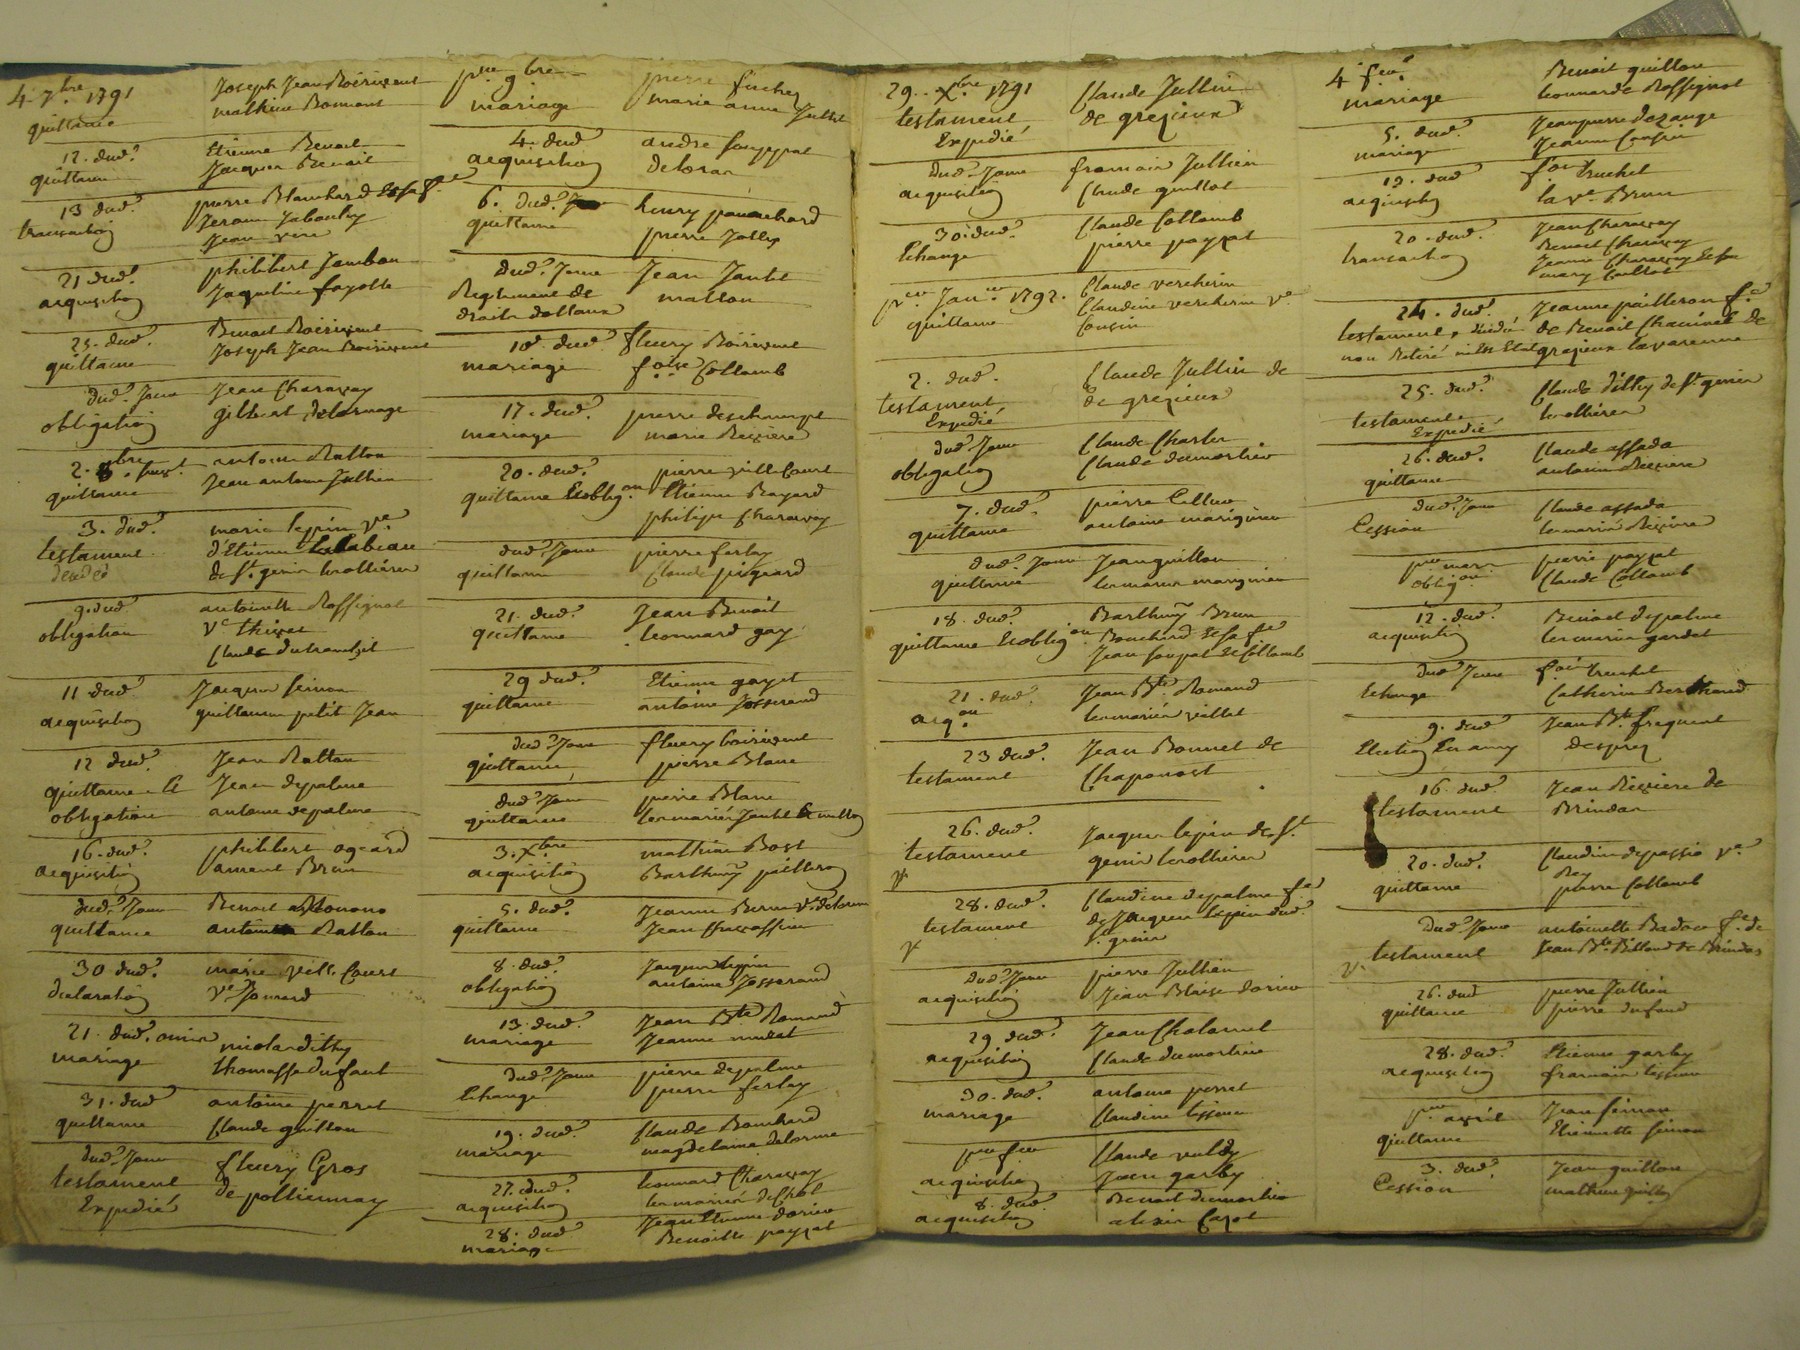 4 7bre 1791
quittance
Joseph Jean Boirivent
mathieu Bonnant
12. dud.
quittance
Etienne Benoit
Jacques Benoit
13 dud.
transaction
pierre Blanchard et sa fe
Jerome Jaboulay
Jean
21 dud.
acquisition
philibert Jambon
Jaqueline fayolle
25. dud.
quittance
Benoit Boirivent
Joseph Jean Boirivent
dud. Jour
obligation
Jean Charavay
gilbert delormage
2. 8bre
quittance
antoine Ratton
Jean antoine Jullien
3. dud.
testament
marie lepin ve
d'Etienne
de St. genis lerollieres
9. dud.
obligation
antoinette Rossignol
ve
Claude
11 dud.
acquisition
Jacques
guillaume petit Jean
12 dud.
quittance et
obligation
Jean Ratton
Jean depalme
antoine depalme
16. dud.
acquisition
philibert ogeard
Brun
dud. Jour
quittance
Benoit
Ratton
30 dud.
declaration
marie villecourt
ve
21. dud. omis
mariage
nicolas ditty
thomasse dufaut
31. dud
quittance
antoine perret
Claude guillon
dud. Jour
testament
Expedié
fleury Gros
de pollionnay
pre 9bre
mariage
pierre
marie anne
4. dud
acquisition
andre
deloras
6. dud. Jour
quittance
henry ponchard
pierre Jolly
dud. Jour
Reglement de
droits dottaux
Jean Jantet
matton
10 dud.
mariage
fleury Boirivent
foise Collomb
17. dud.
mariage
pierre deschamps
marie Riviere
20. dud.
quittance et oblig.on
pierre villecourt
Etienne Bayard
philipe Charavay
dud. Jour
quittance
pierre ferlay
Claude pigeard
21. dud.
quittance
Jean Benoit
leonnard gay
29 dud.
quittance
Etienne gayet
antoine Josserand
dud. Jour
quittance
fleury boirivent
pierre Blanc
dud. Jour
quittance
pierre Blanc
les mariés Jantet et matton
3. Xbre
acquisition
mathieu Bost
Barthmy pailleron
5. dud.
quittance
Jeanne Berne ve delorme
Jean
8. dud.
obligation
Jacques lepin
antoine Josserand
13. dud.
mariage
Jean Bte. Romand
Jeanne
dud. Jour
Echange
pierre depalme
pierre ferlay
19. dud.
mariage
Claude Bouchard
magdelaine delorme
27. dud.
acquisition
leonnard Charavay
les mariés
28. dud
mariage
Jean Etienne dorieu
Benoitte payzat
29. Xbre 1791
testament
Expedié
Claude Jullien
de grezieux
dud. Jour
acquisition
francois Jullien
Claude guillot
30. dud.
Echange
Claude Collomb
pierre payzat
per Janer 1792.
quittance
Claude vercherin
Claudine vercherin ve
Cousin
2. dud.
testament
Expedié
Claude Jullien de
de grezieux
dud. Jour
obligation
Claude Charlet
Claude dumortier
7. dud.
quittance
pierre
antoine marignier
dud. Jour
quittance
Jean guillon
les mariés marignier
18. dud.
quittance et oblig.on
Barthmy Brun
Bouchard et sa fe
Jean
21. dud.
acq.on
Jean Bte. Romand
les mariés viallet
23 dud.
testament
Jean Bonnet de
Chaponost
26. dud.
testament
Jacques lepin de St.
genis lerollieres
28. dud.
testament
Claudine depalme fe
de Jacques lepin dud.
St. genis
dud. Jour
acquisition
pierre Jullien
Jean Blaise dorieu
29 dud.
acquisition
Jean Chalamel
Claude dumortier
30. dud.
mariage
antoine perret
Claudine tisseur
pre fer
acquisition
Claude
Jean garby
8. dud.
acquisition
Benoit dumortier
alexis Cazot
4 fer
mariage
Benoit guillon
leonnarde Rossignol
5. dud.
mariage
Jean pierre dezange
Jeanne Cousin
12. dud
acquisition
fois truchet
la ve. Brun
20. dud.
transaction
Jean Charavay
Benoit Charavay
Jeanne Charavay
24. dud.
testament
Jeanne pailleron fe
de Benoit
grezieux lavarenne
25. dud.
testament
Expedié
Claude ditty de St. genis
lerollieres
26. dud.
quittance
Claude assada
antoine Riviere
dud. Jour
Cession
Claude assada
les mariés Riviere
per mars
oblig.on
pierre payzat
Claude Collomb
12. dud.
acquisition
Benoit depalme
les mariés gardet
dud. Jour
Echange
fois truchet
Catherine Berthaud
9. dud
Election en amy
Jean Bte. frequent
16. dud
testament
Jean Riviere de
Brindas
20. dud.
quittance
Claudine depassio ve.
Rey
pierre Collomb
dud. Jour
testament
antoinette Badou fe. de
Jean Bte. Billaud de Brindas
26. dud
quittance
pierre Jullien
pierre dufaud
28. dud.
acquisition
Etienne garby
francois tisseur
per avril
quittance
Jean
Etiennette
3. dud.
Cession
Jean guillon
mathieu guillon